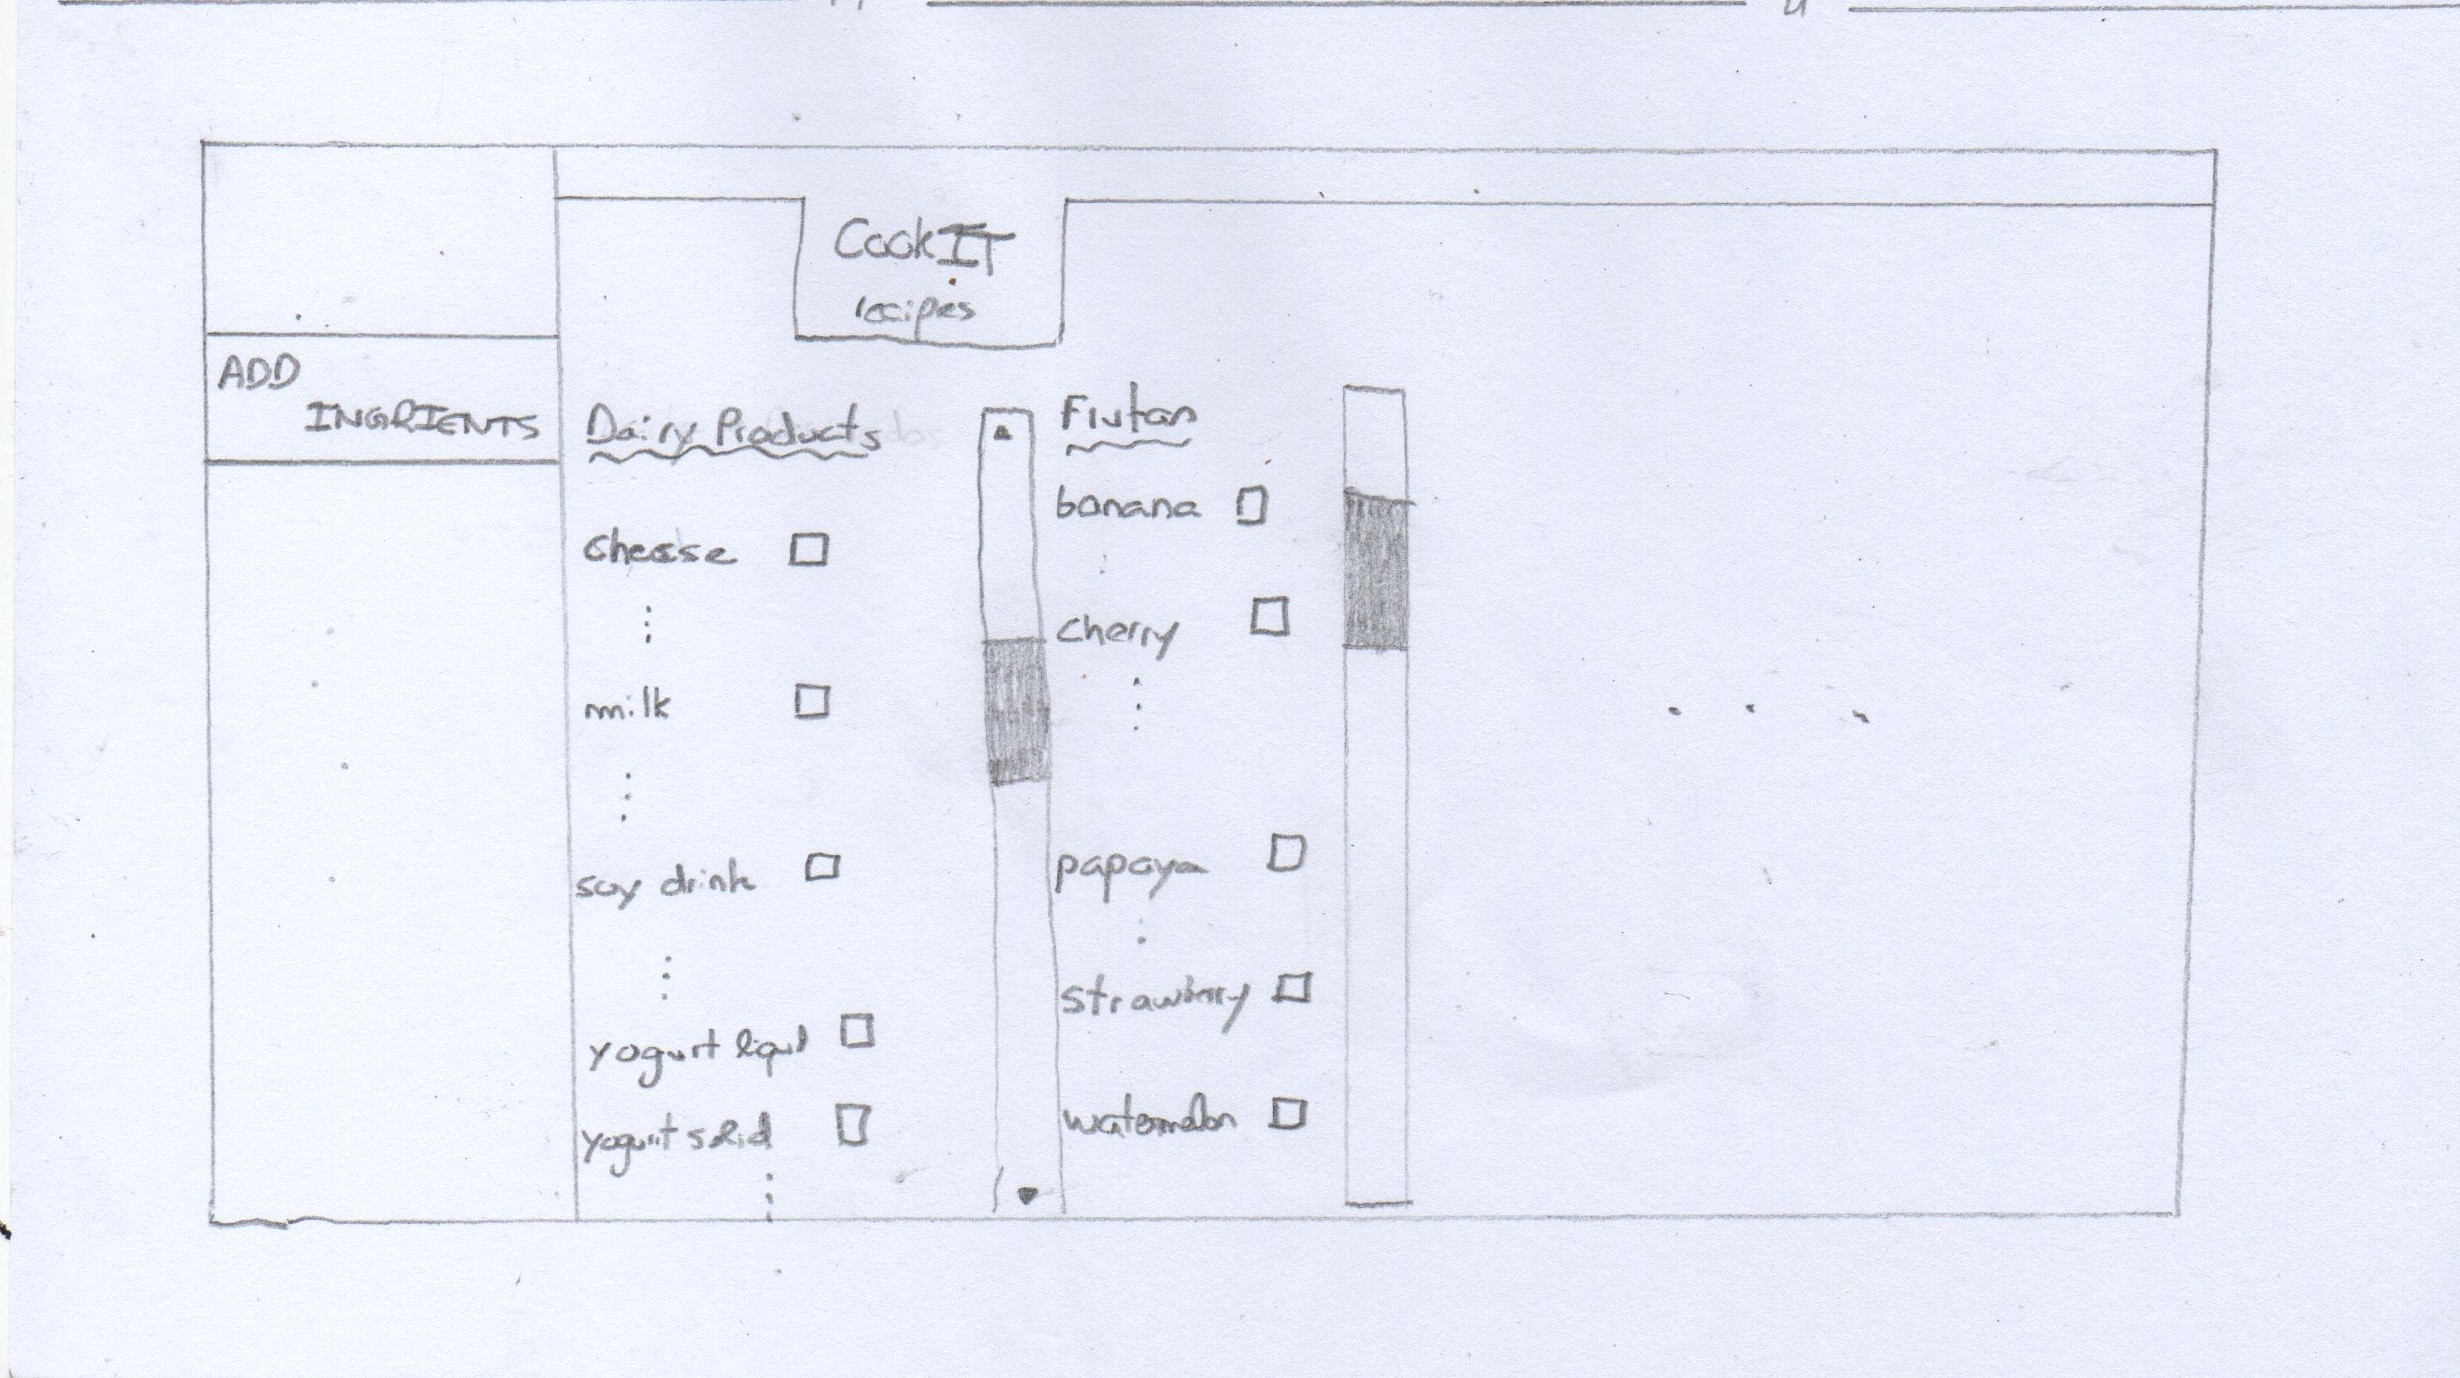 CookIT
recipes
ADD
INGRIENTS
Dairy Products
cheese
milk
soy drink
yogurt liquid
yogurt solid
banana
cherry
papaya
strawberry
watermelon